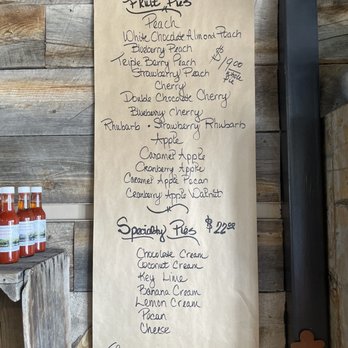 Fruit Pies
Peach
White Chocolate Almond Peach
Blueberry Peach
Triple Berry Peach
Strawberry Peach
$19.00
whole pie
Cherry
Double Chocolate Cherry
Blueberry Cherry
Rhubarb • Strawberry Rhubarb
Apple
Caramel Apple
Cranberry Apple
Caramel Apple Pecan
Cranberry Apple Walnut
Specialty Pies $22.00
Chocolate Cream
Coconut Cream
Key Lime
Banana Cream
Lemon Cream
Pecan
Cheese